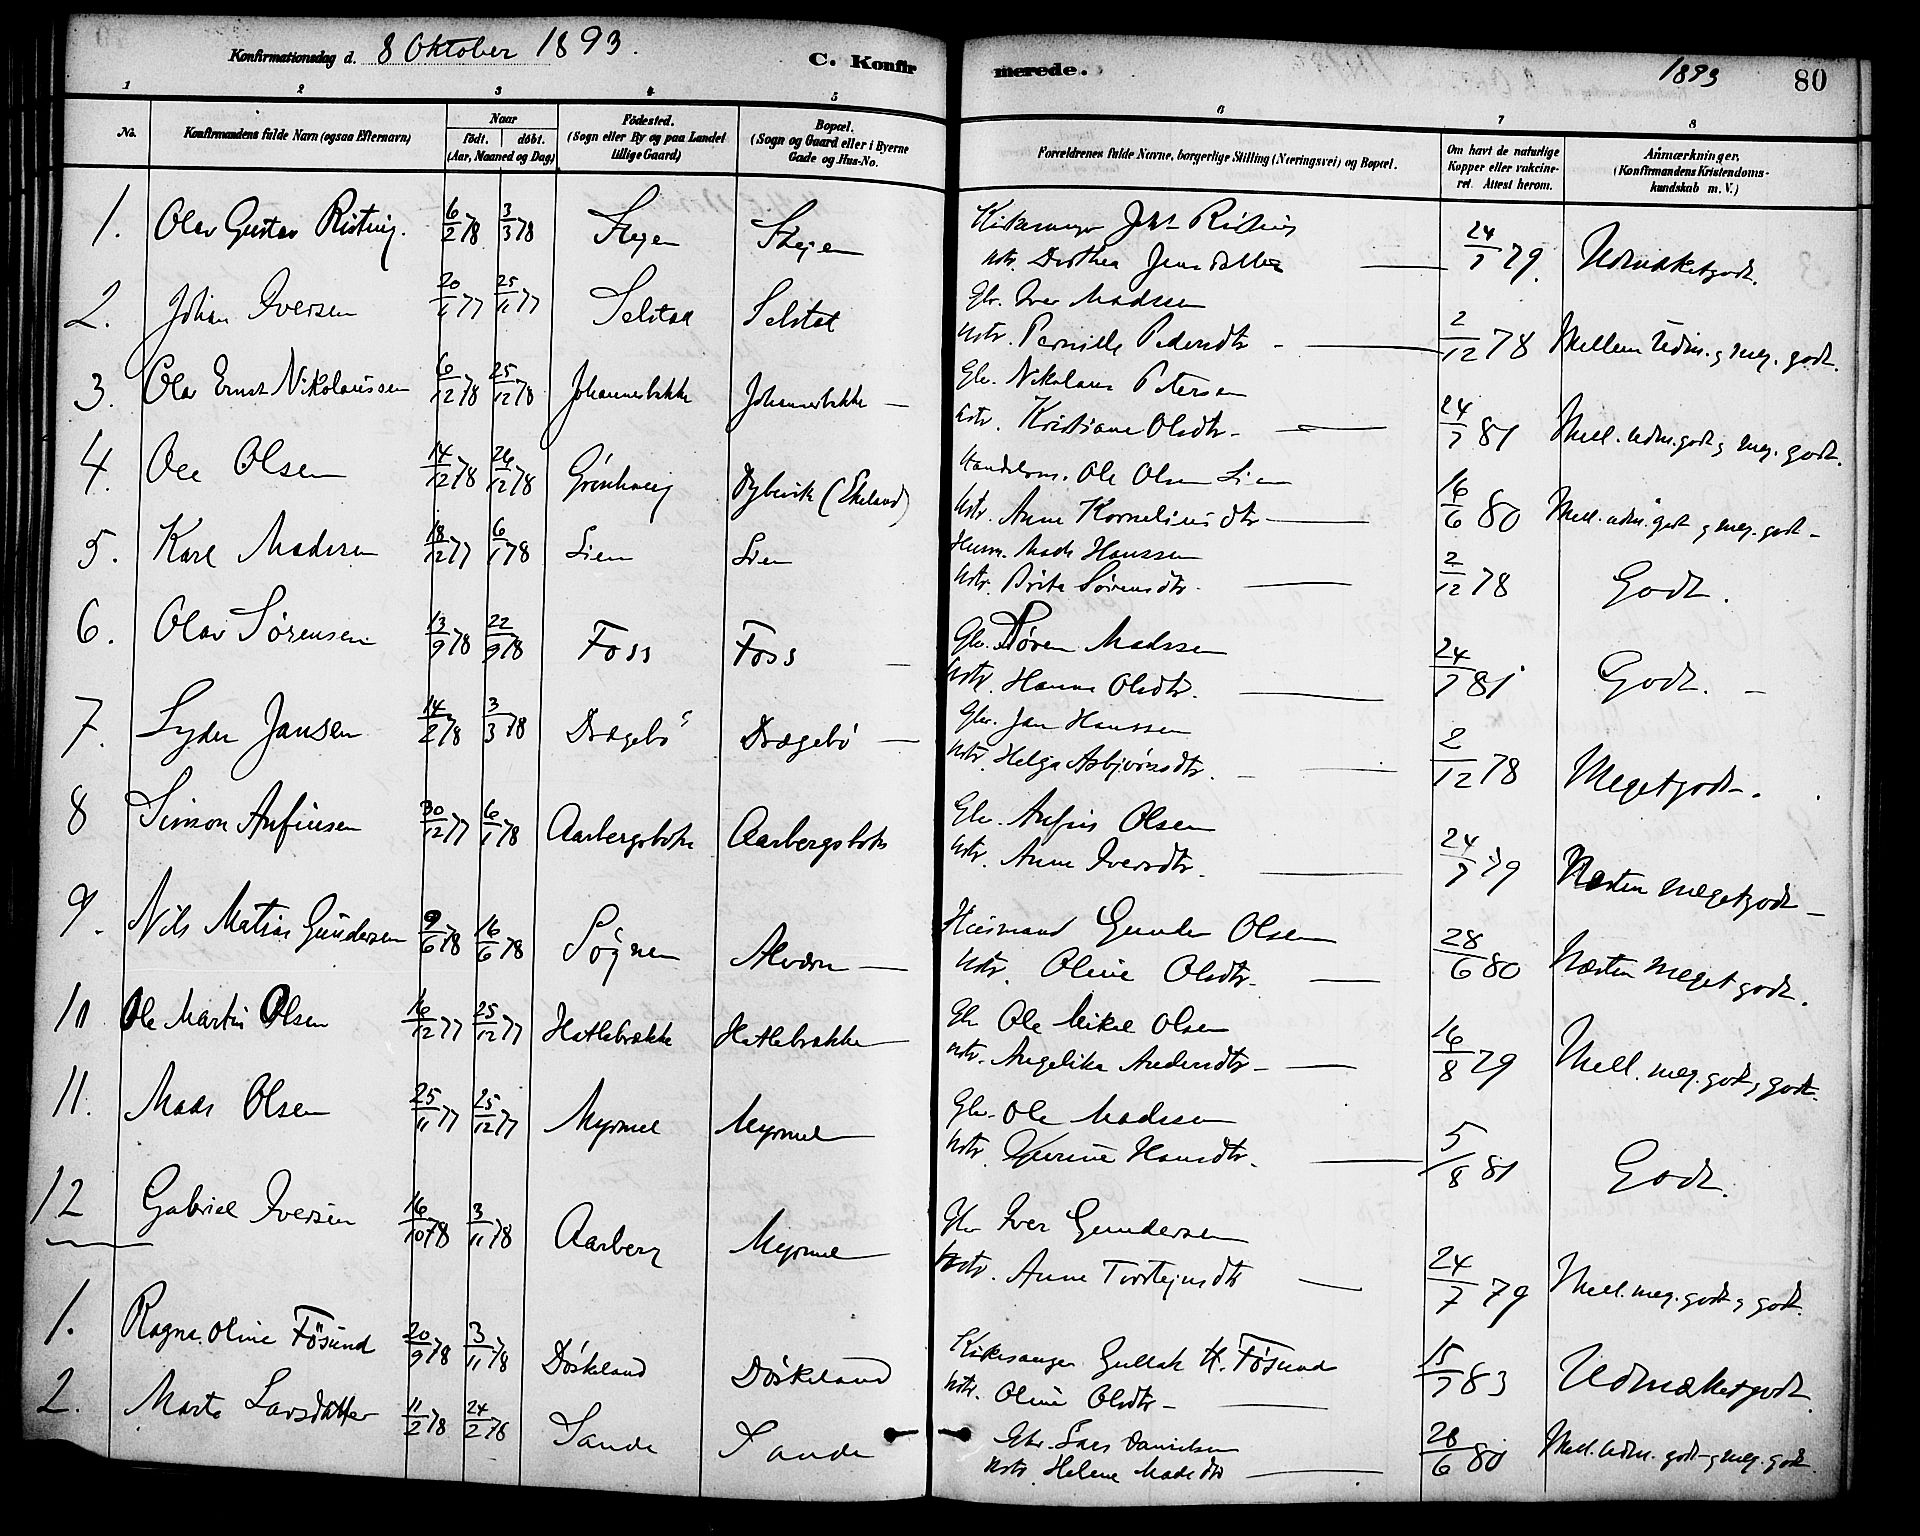 Konfirmationsdag d. 8 Oktober 1893.
C. Konfirmerede.
1893
80
1 2 3 4 5 6 7 8
No.
Konfirmandens fulde Navn (ogsaa Efternavn)
Naar
født. døbt.
(Aar, Maaned og Dag)
Fødested.
(Sogn eller By og paa Landet
tillige Gaard)
Bopæl.
(Sogn og Gaard eller i Byerne
Gade og Hus-No.
Forældrenes fulde Navne, borgerlige Stilling (Næringsvei) og Bopæl.
Om havt de naturlige
Kopper eller vakcine-
ret. Attest herom.
Anmærkninger.
(Konfirmandens Kristendoms-
kundskab m. V.)
1. Olav Gustav Risting. 6/2 78 3/3 78
Kirkesanger Risting
Hstr. Dorthea 24/7 79. Udmærketgodt.
2. Johan Iversen 20/11 77 25/11 77 Selstad Selstad Gbr. Iver Madssen
Hstr. Pernille Pedersdtr - 2/12 78 Mellem Udm. og meg. godt.
3. Olav Ernst Nikolaussen 6/12 78 25/12 78 Johannesbakke Johannesbakke Gbr. Nikolaus Petersen
Hstr. Kristiane Olsdtr- 24/7 81 Mell. udm. godt og meg. godt.
4. Ole Olsen 14/12 78 26/12 78 Grønhaug Dybevik (Ekeland) Handelsm. Ole Olsen Lien
Hstr. Anne Korneliusdtr- 16/6 80 Mell. udm. godt og meg. godt-
5. Karl Madssen 18/12 77 6/1 78 Lien Lien Husm. Mads Hanssen
Hstr. Brite Sørensdtr. 2/12 78 Godt.
6. Olav Sørensen 13/9 78 22/9 78 Foss Foss Gbr. Søren Madssen
Hstr. Hanne Olsdtr. 24/7 81 Godt. -
7. Lyder Jansen 14/2 78 3/3 78 Drægebø Drægebø Gbr. Jan Hanssen
Hstr. Helga Asbjørnsdtr. 2/12 78 Megetgodt-.
8 Simon Anfinsen 30/12 77 6/1 78 Aarbergsbotn Aarbergsbotn Gbr. Anfin Olsen
Hstr. Anne Iversdtr. 24/7 79 Næsten megetgodt-
9. Nils Matias Gundersen 9/6 78 16/6 78 Søgnen Alværn Husmand Gunder Olsen
Hstr. Oline Olsdtr- 28/6 80 Næsten meget godt.
10 Ole Martin Olsen 16/12 77 25/12 77 Hatlebrække Hatlebrække Gbr Ole Mikal Olsen
Hstr. Angelika Andersdtr- 16/8 79 Mell. meg. godt og godt.
11. Mads Olsen 25/11 77 25/12 77 Myrmel Myrmel Gbr. Ole Madssen
Hstr. Hansdtr. 5/8 81 Godt.
12 Gabriel Iversen 16/10 78 3/11 78 Aarberg Myrmel Gbr Iver Gundersen
Hstr. Anne Torsteinsdtr 24/7 79 Mell. meg. godt og godt.
1. Ragna Oline Føsund 20/9 78 3/11 78 Døskeland Døskeland Kirkesanger Gullak H. Føsund
Hstr. Oline Olsdtr- 15/7 83 Udmærketgodt.
2. Marta Larsdatter 11/2 78 24/2 78 Sande Sande Gbr. Lars Danielsen
Hstr. Helene Madsdtr 28/6 80 Mell. udm. godt og meg. godt